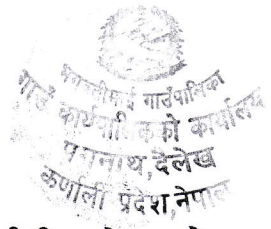 भगवतीमाई गाउँपालिका
गाउँ कार्यपालिकाको कार्यालय
दैलेख
कर्णाली प्रदेश, नेपाल